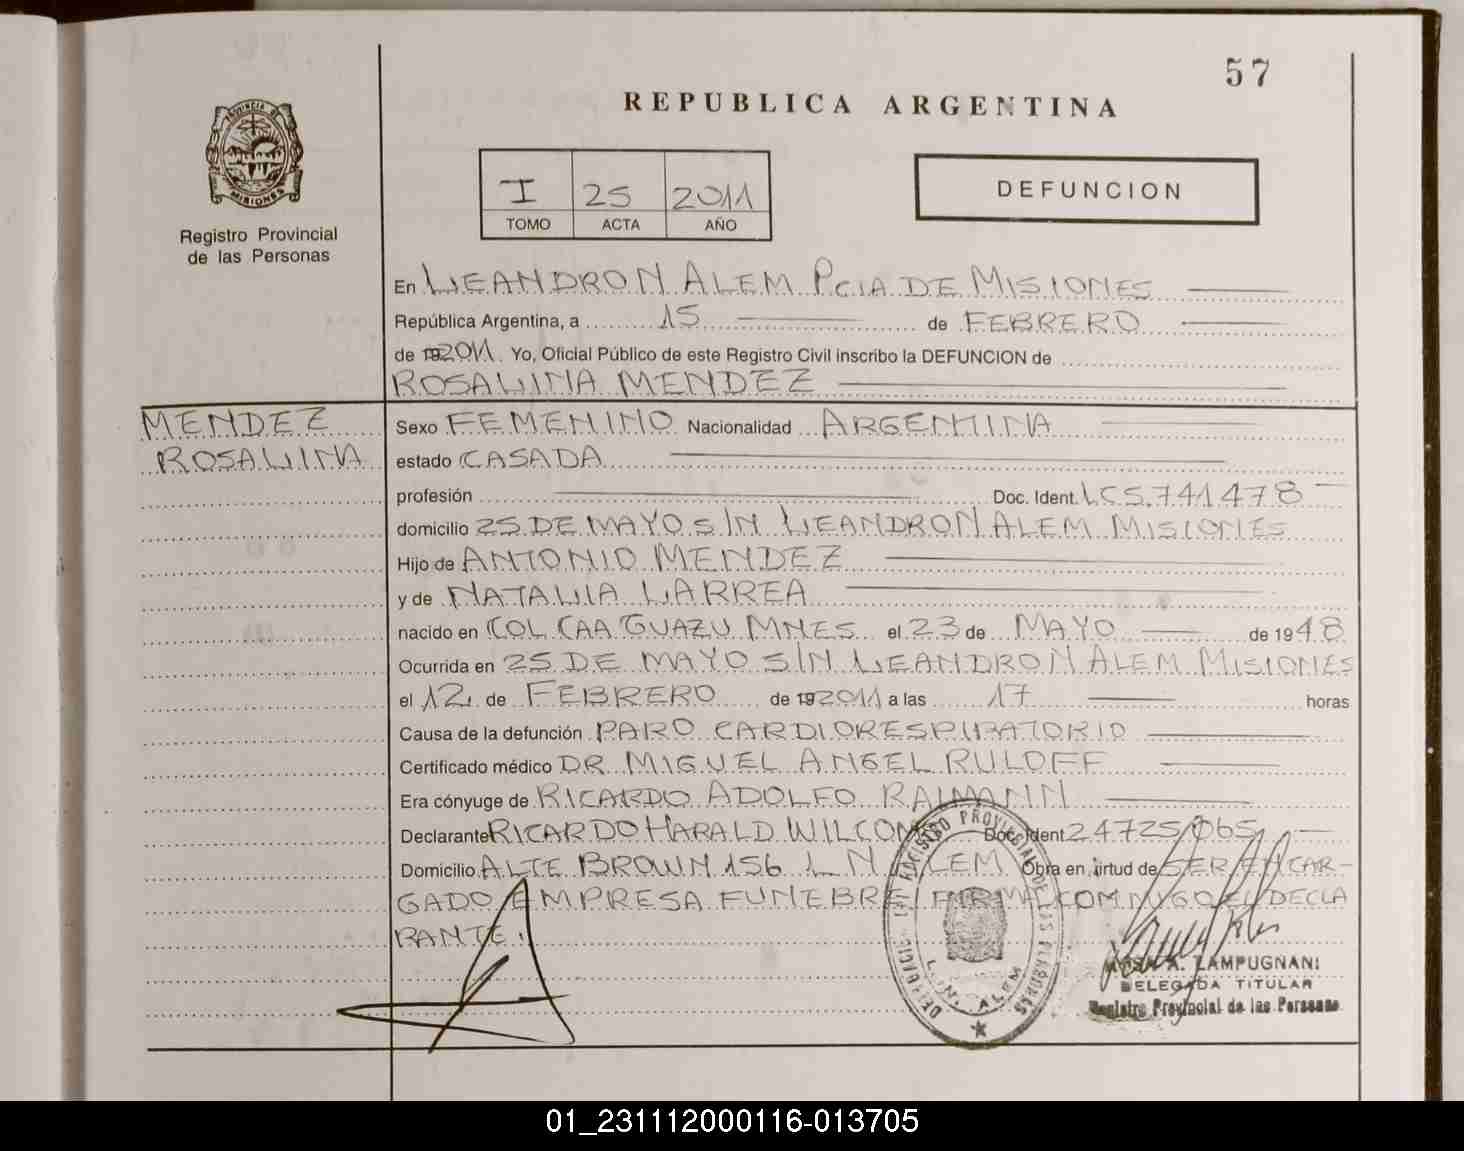 57
REPUBLICA ARGENTINA
PROVINCIA DE
MISIONES
Registro Provincial
de las Personas
I 25 2011
TOMO ACTA AÑO
DEFUNCION
En LEANDRO N ALEM PCIA DE MISIONES
República Argentina, a 15 de FEBRERO
de 192011. Yo, Oficial Público de este Registro Civil inscribo la DEFUNCION de
ROSALINA MENDEZ
MENDEZ
ROSALINA
Sexo FEMENINO Nacionalidad ARGENTINA
estado CASADA
profesión Doc. Ident. LC5.741478
domicilio 25 DE MAYO S/N LEANDRO N ALEM MISIONES
Hijo de ANTONIO MENDEZ
y de NATALIA LARREA
nacido en COL CAA GUAZU MNES el 23 de MAYO de 1948
Ocurrida en 25 DE MAYO S/N LEANDRO N ALEM MISIONES
el 12 de FEBRERO de 192011 a las 17 horas
Causa de la defunción PARO CARDIORESPIRATORIO
Certificado médico DR MIGUEL ANGEL RULOFF
Era cónyuge de RICARDO ADOLFO RAIMANN
Declarante RICARDO HARALD WILCOM Doc. Ident 24725065
Domicilio ALTE BROWN 156 L N ALEM Obra en virtud de SER ENCAR-
GADO EMPRESA FUNEBRE FIRMA CONMIGO EL DECLA
RANTE.
REGISTRO PROVINCIAL DE LAS PERSONAS
L. N. ALEM
A. LAMPUGNANI
DELEGADA TITULAR
Registro Provincial de las Personas
01_231112000116-013705